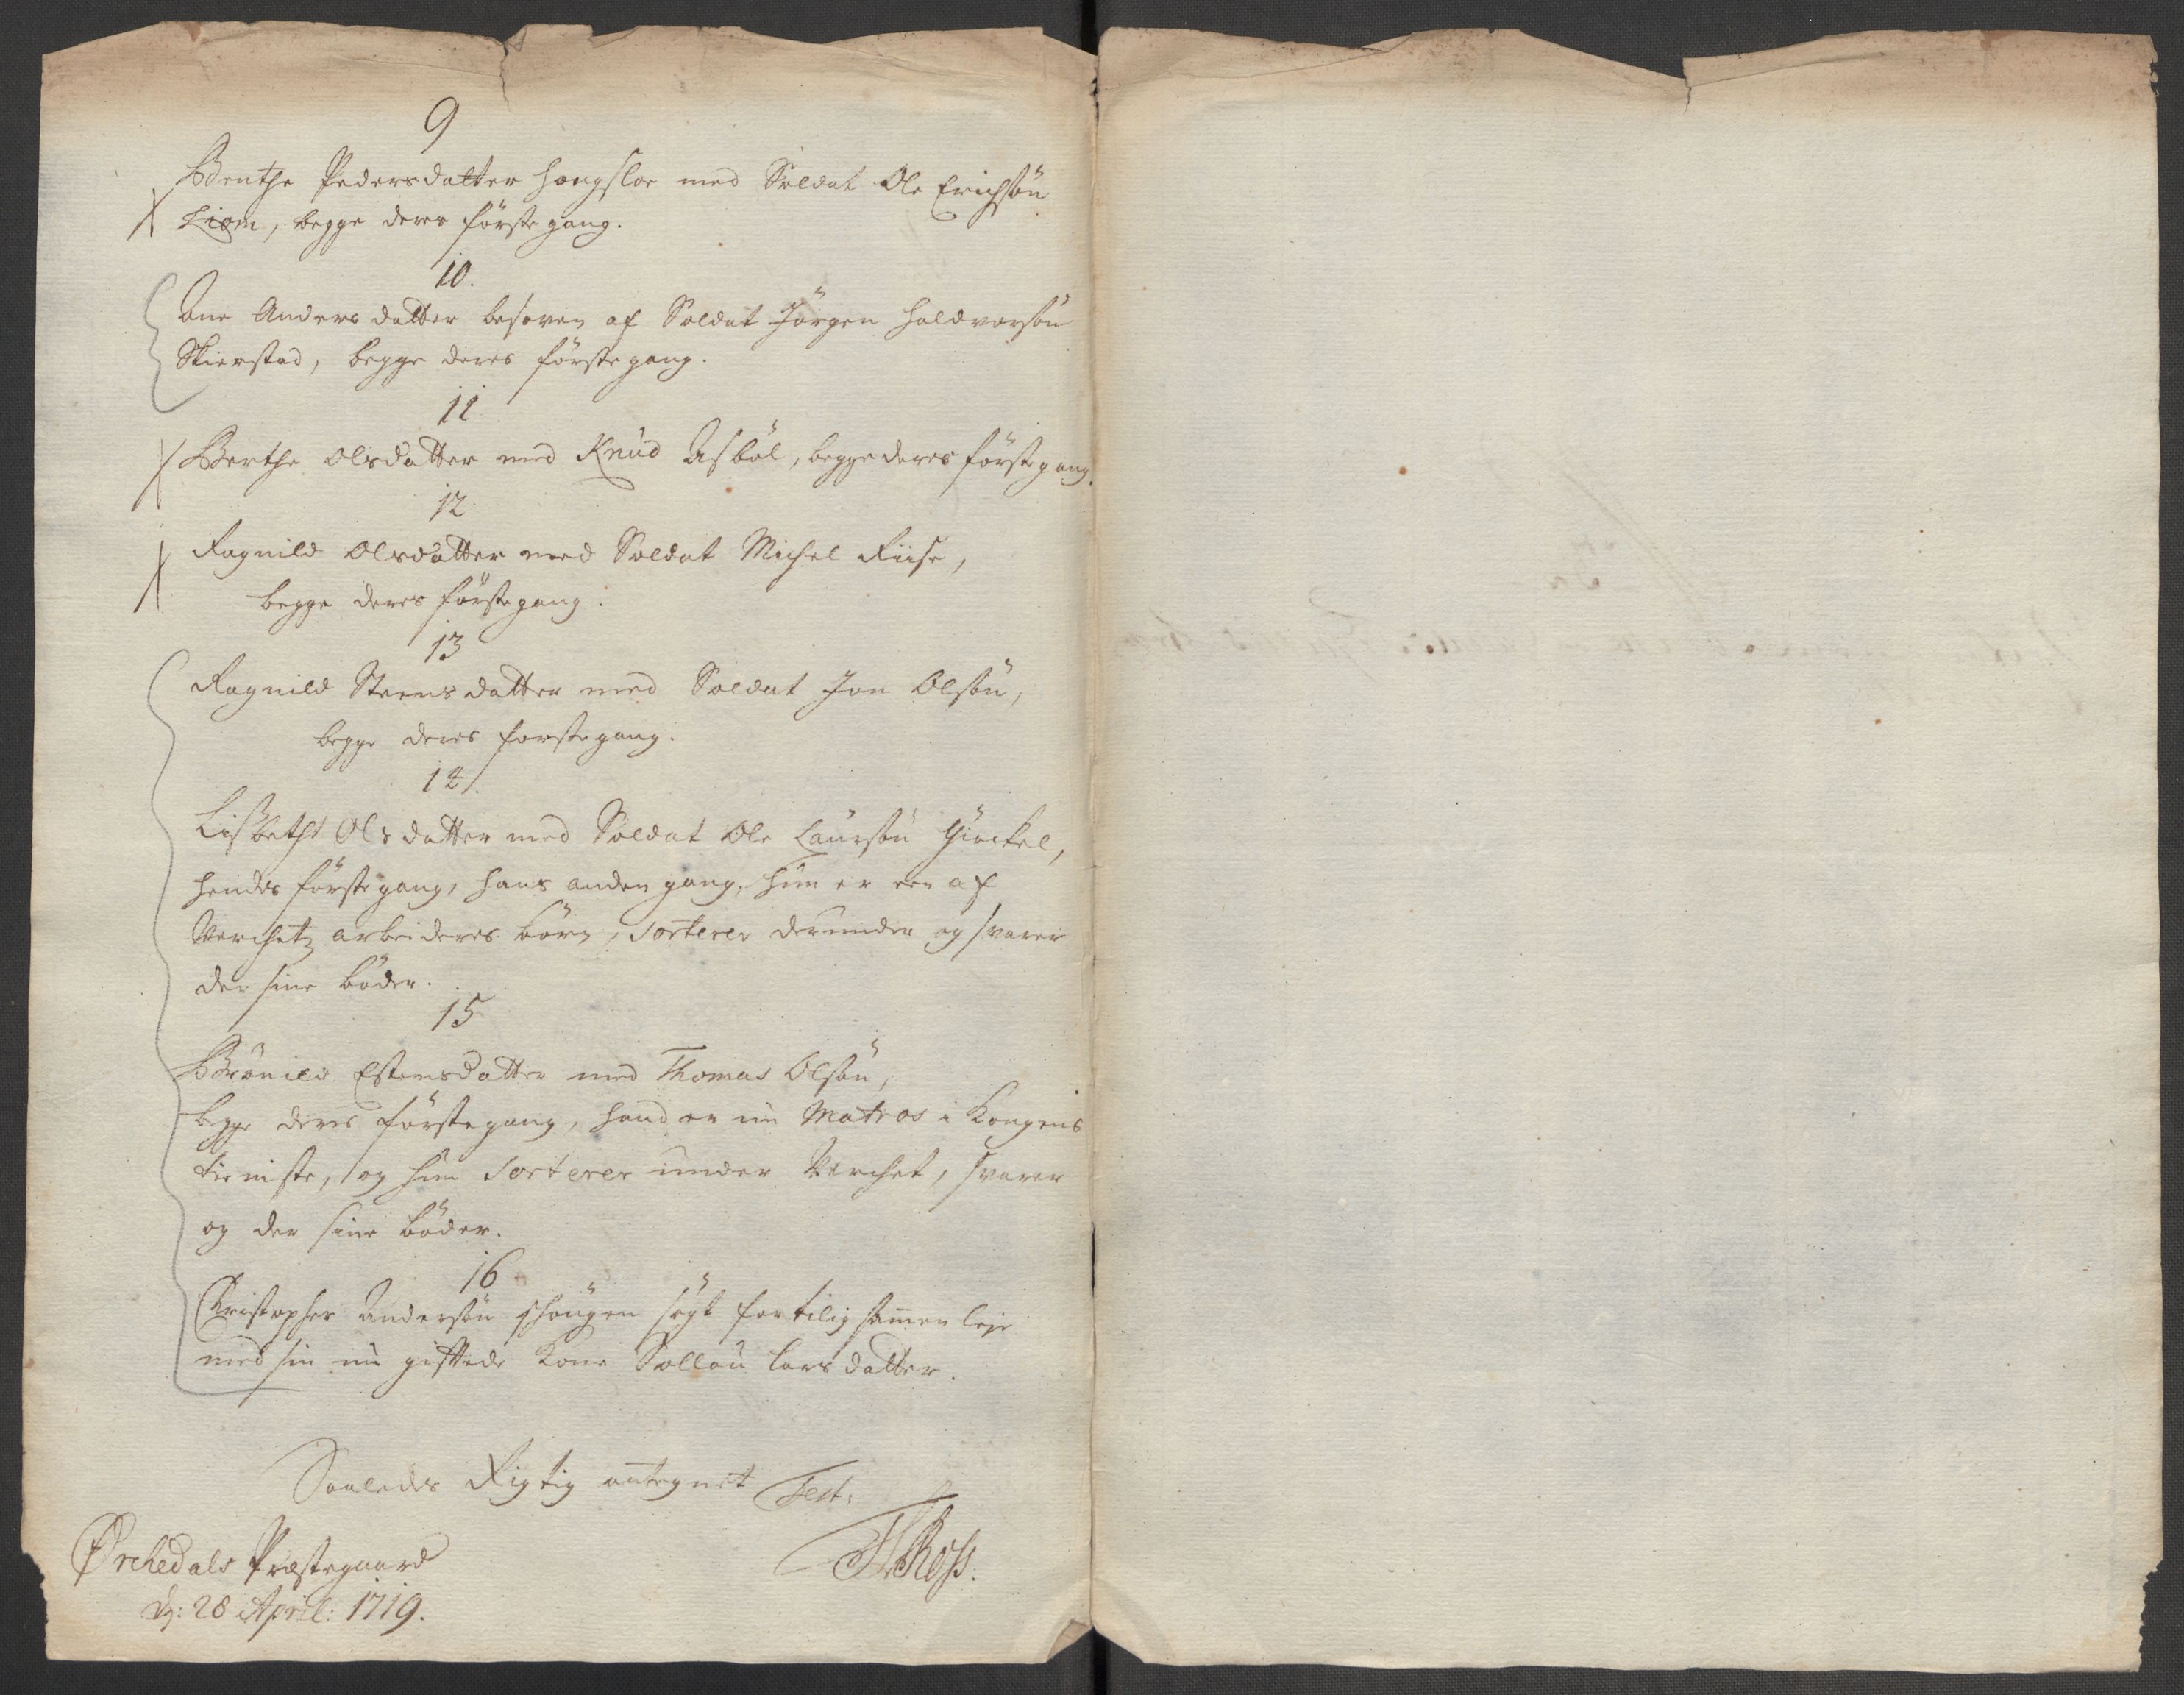 9
Benthe Pedersdatter Hougsloe med Soldat Ole Erichsøn
Liøm, begge deres første gang.
10.
Ane Andersdatter besoven af Soldat Jörgen Haldvorsön
Skierstad, begge deres förste gang.
11
Berthe Olsdatter med Knud Asböl, begge deres förste gang.
12
Ragnild Olsdatter med Soldat Michel Riise,
begge deres förste gang.
13
Ragnild Steensdatter med Soldat Jon Olsön,
begge deres forste gang.
14.
Lisbeth Olsdatter med Soldat Ole Laursön
hendes förste gang, hans anden gang, hun er een af
Verchetz arbeideres börn, sorterer derunder og svarer
der sine böder.
15
Brönild Estensdatter med Thomas Olsön,
begge deres förste gang, hand er nu Matros i Kongens
tieniste, og hun Sorterer under Verchet, svarer
og der sine böder.
16
Christopher Andersön sögt for tilig sammen leje
med sin nu giftede Kone Sollau Larsdatter.
Saaledes Rigtig antegnet Test:
Ørchedals Præstegaard
d: 28 April: 1719.